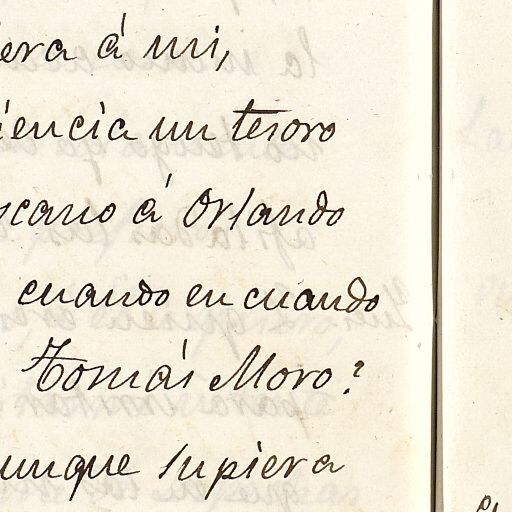 era á mi,
iencia un tesoro
scano á Orlando
cuando en cuando
Tomás Moro?
unque supiera